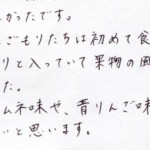 かったです。
ごもりたちは初めて食
りと入っていて果物の風
た。
ムネ味や、青りんご味
いと思います。